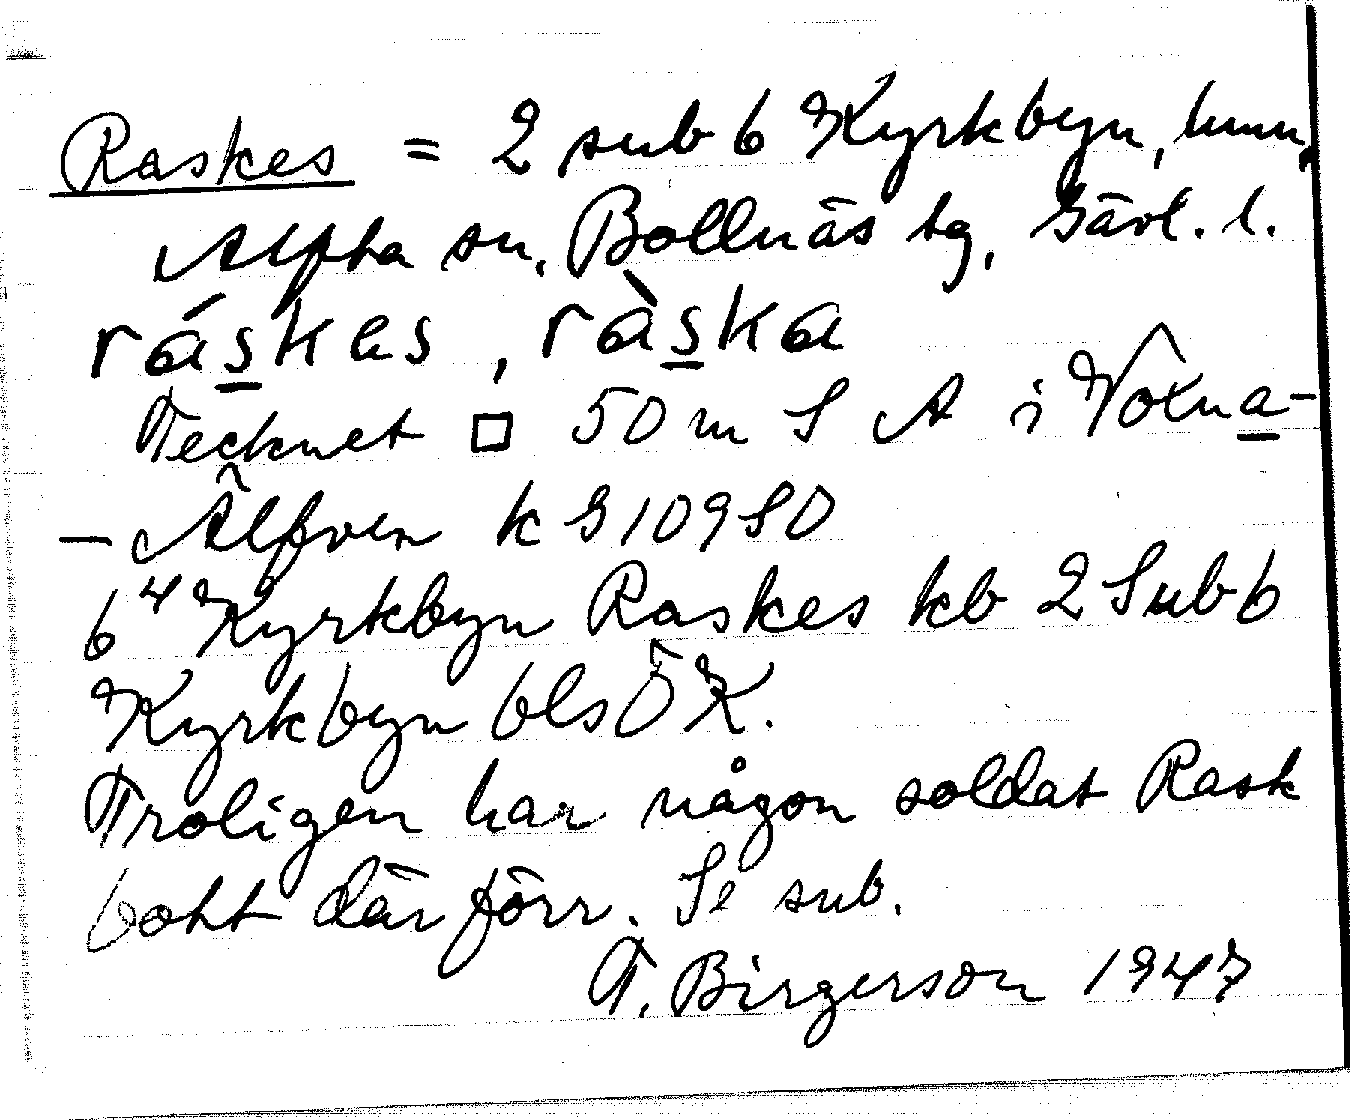 Raskes = 2 sub 6 Kyrkbyn, hmn,
Alfta sn, Bollnäs tg, Gävl. l.
ráskes, ràska
Tecknet □ 50 m S A i Voxna-
- Älfven k G109SO
6⁴ Kyrkbyn Raskes kb 2 Sub 6
Kyrkbyn bls ÖK.
Troligen har någon soldat Rask
bott där förr. Se sub.
T. Birgerson 1947